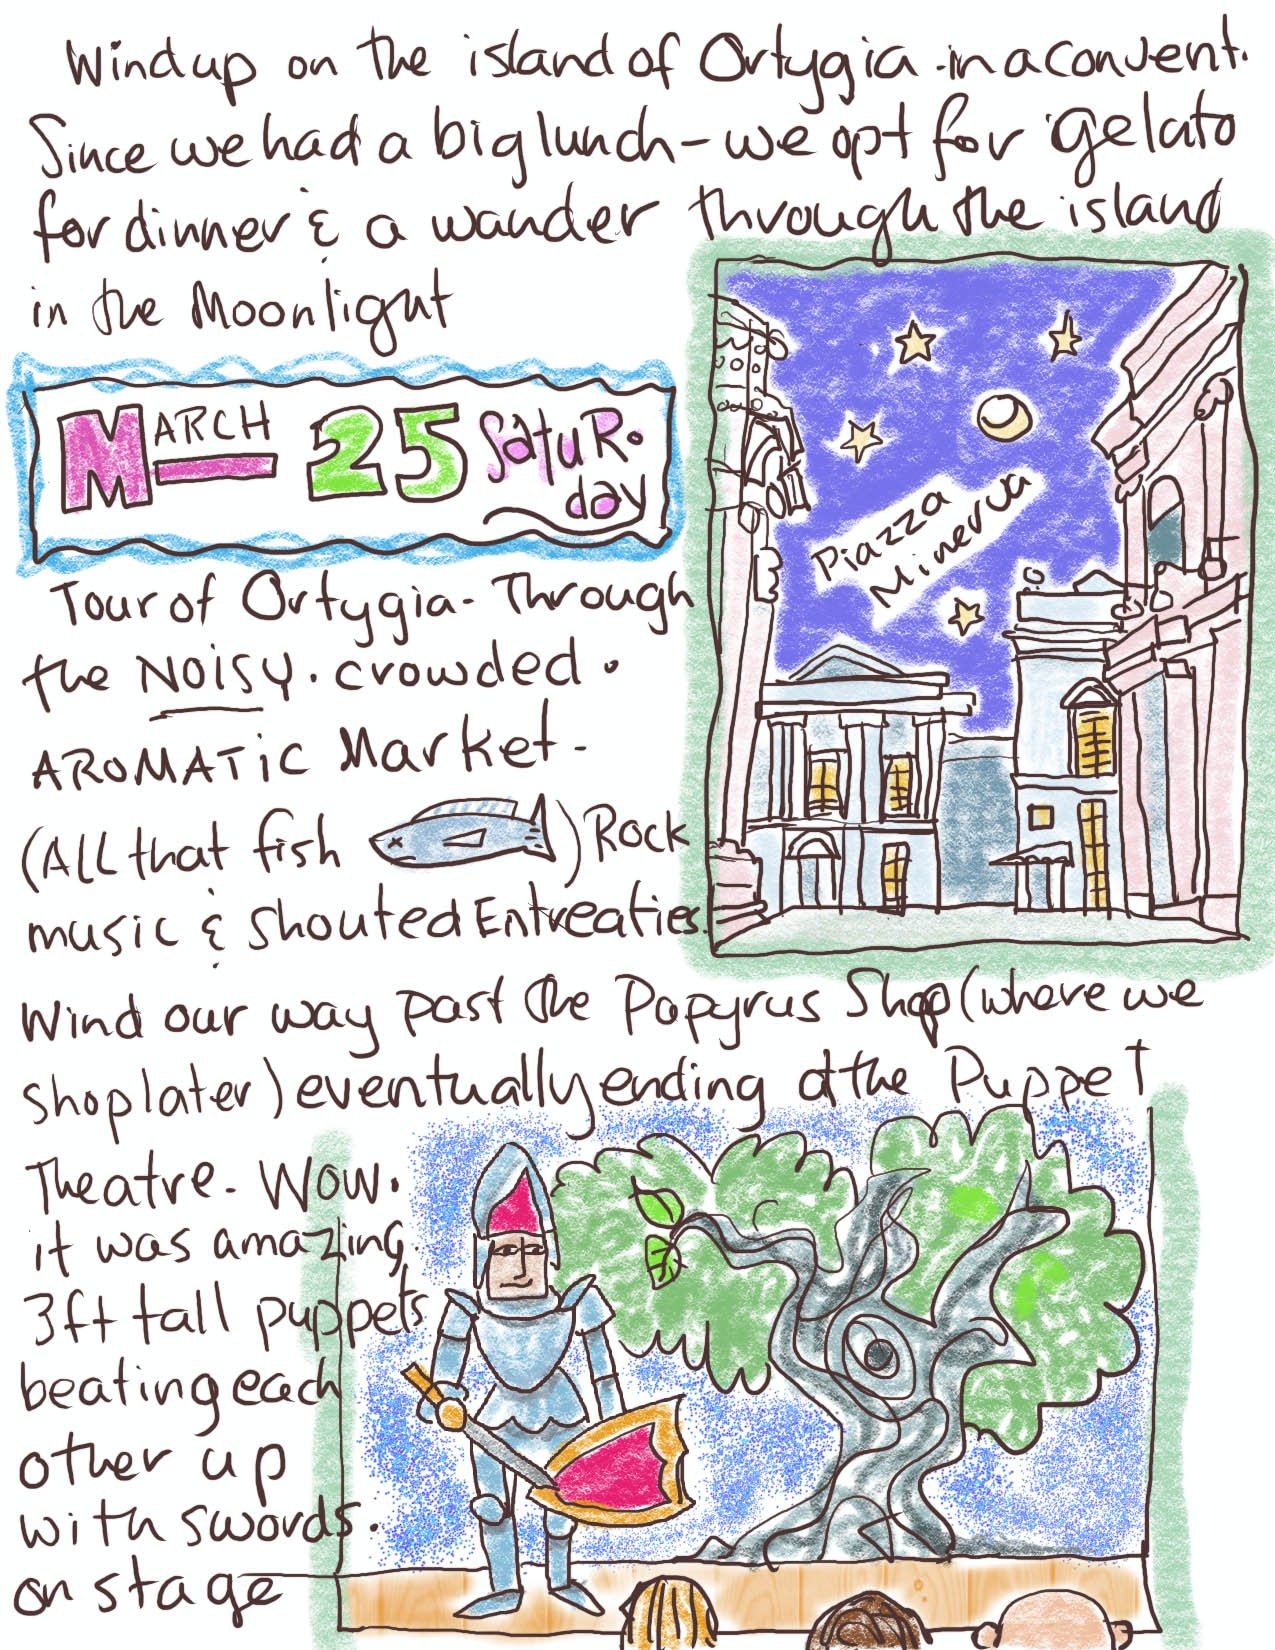 Wind up on the island of Ortygia - in a convent.
Since we had a big lunch - we opt for gelato
for dinner & a wander through the island
in the Moonlight
MARCH 25 Satur.
day
Piazza
Minerva
Tour of Ortygia - Through
the NOISY. crowded.
AROMATIC Market -
(All that fish ) Rock
music & shouted Entreaties.
Wind our way past the Papyrus Shop (where we
shop later) eventually ending at the Puppet
Theatre. Wow.
it was amazing.
3ft tall puppets
beating each
other up
with swords.
on stage